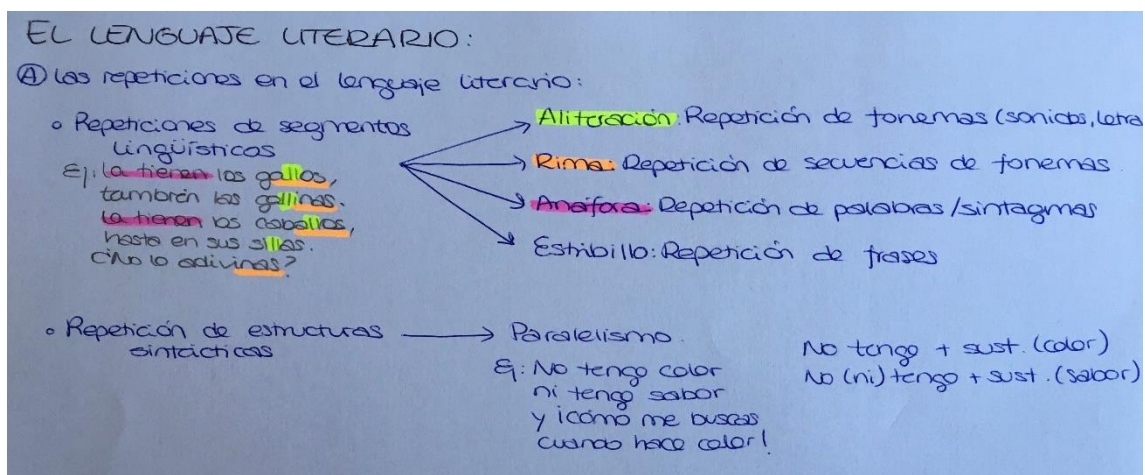 EL LENGUAJE LITERARIO:
Ⓐ Las repeticiones en el lenguaje literario:
◦ Repeticiones de segmentos
lingüísticos
Ej: La tienen los gallos,
también las gallinas.
La tienen los caballos,
hasta en sus sillas.
¿No lo adivinas?
Aliteración: Repetición de fonemas (sonidos, letra
Rima: Repetición de secuencias de fonemas.
Anáfora: Repetición de palabras/sintagmas
Estribillo: Repetición de frases
◦ Repetición de estructuras
sintácticas
Paralelismo.
Ej: No tengo color
ni tengo sabor
y ¡cómo me buscas
cuando hace calor!
No tengo + sust. (color)
No (ni) tengo + sust. (sabor)